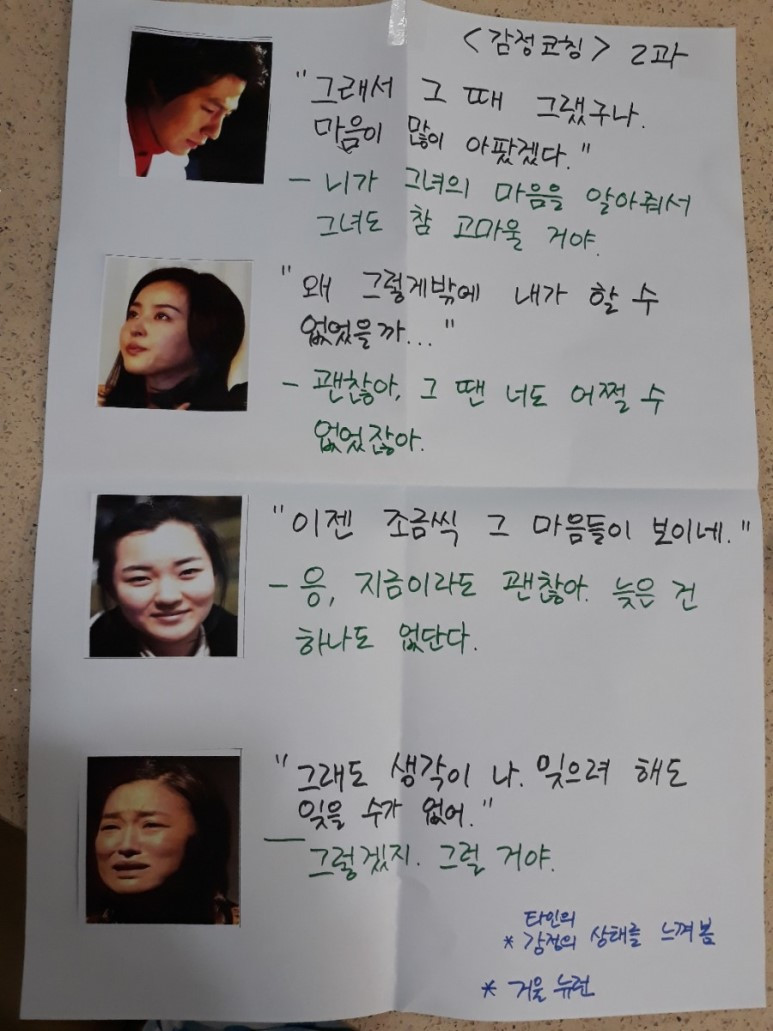 <감정코칭> 2과
"그래서 그 때 그랬구나.
마음이 많이 아팠겠다."
- 니가 그녀의 마음을 알아줘서
그녀도 참 고마울 거야.
"왜 그렇게밖에 내가 할 수
없었을까..."
- 괜찮아, 그 땐 너도 어쩔 수
없었잖아.
"이젠 조금씩 그 마음들이 보이네."
- 응, 지금이라도 괜찮아. 늦은 건
하나도 없단다.
"그래도 생각이 나. 잊으려 해도
잊을 수가 없어."
- 그렇겠지. 그럴 거야.
타인의
* 감정의 상태를 느껴봄
* 거울 뉴런